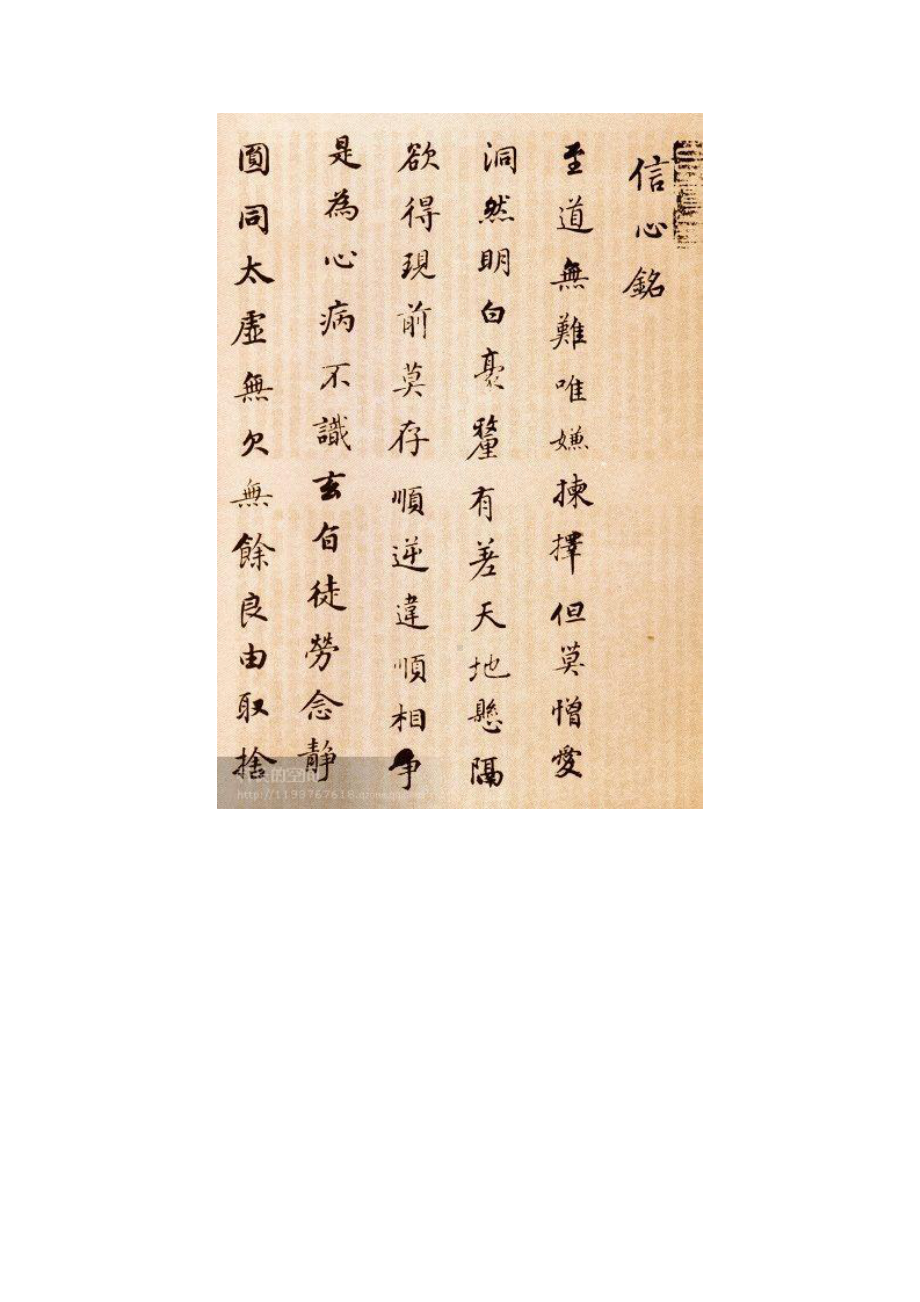 信心銘
至道無難唯嫌揀擇但莫憎愛
洞然明白豪釐有差天地懸隔
欲得現前莫存順逆違順相爭
是為心病不識玄旨徒勞念靜
圓同太虛無欠無餘良由取捨
的空间